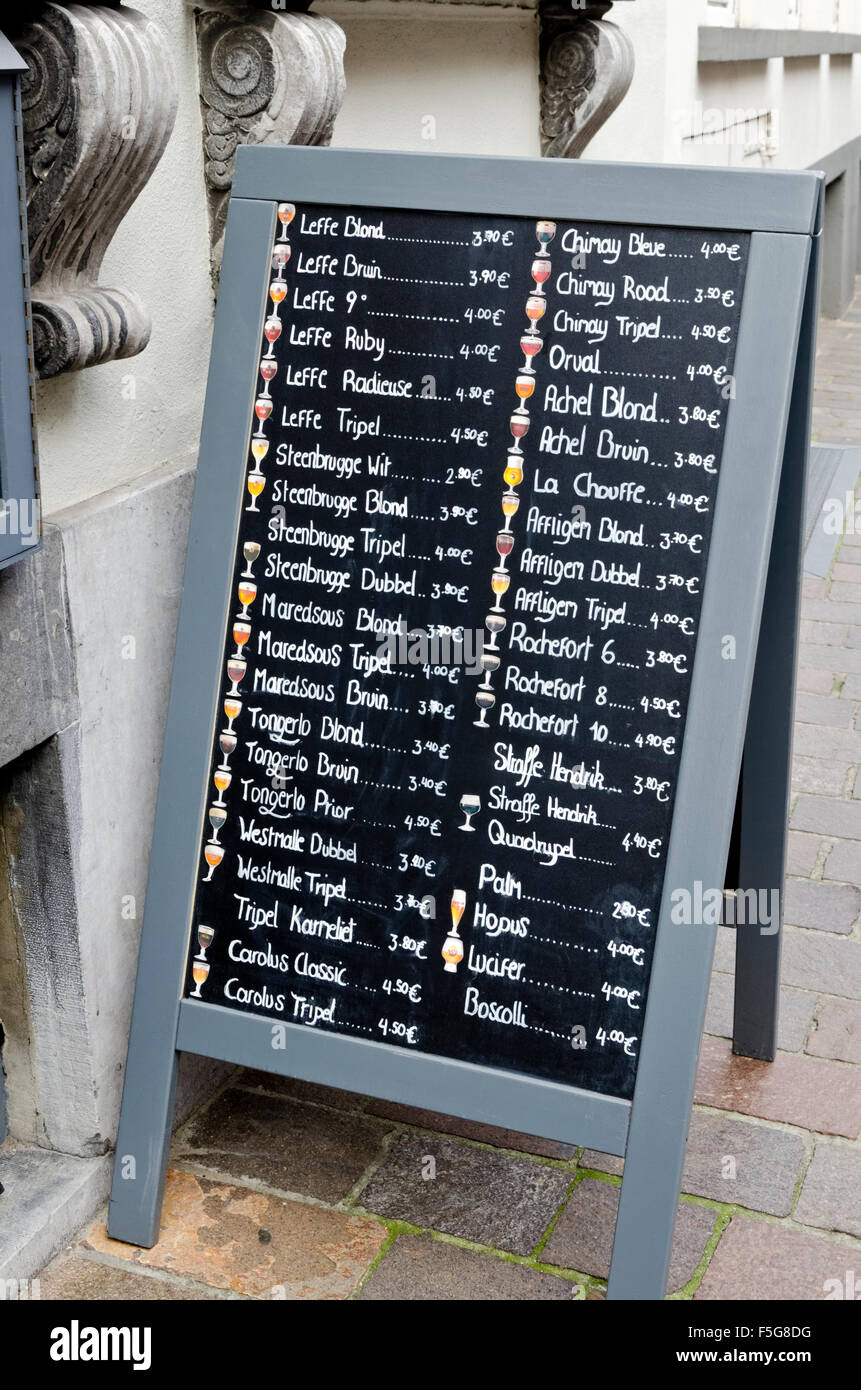 Leffe Blond 3.70€
Leffe Bruin 3.90€
Leffe 9° 4.00€
Leffe Ruby 4.00€
Leffe Radieuse 4.50€
Leffe Tripel 4.50€
Steenbrugge Wit 2.80€
Steenbrugge Blond 3.90€
Steenbrugge Tripel 4.00€
Steenbrugge Dubbel 3.80€
Maredsous Blond 3.70€
Maredsous Tripel 4.00€
Maredsous Bruin 3.70€
Tongerlo Blond 3.40€
Tongerlo Bruin 3.40€
Tongerlo Prior 4.50€
Westmalle Dubbel 3.20€
Westmalle Tripel 3.70€
Tripel Karneliet 3.80€
Carolus Classic 4.50€
Carolus Tripel 4.50€
Chimay Bleve 4.00€
Chimay Rood 3.50€
Chimay Tripel 4.50€
Orval 4.00€
Achel Blond 3.80€
Achel Bruin 3.80€
La Chouffe 4.00€
Affligen Blond 3.70€
Affligen Dubbel 3.70€
Affligem Tripel 4.00€
Rochefort 6 3.80€
Rochefort 8 4.50€
Rochefort 10 4.90€
Straffe Hendrik 3.80€
Straffe Hendrik
Quadrupel 4.40€
Palm 2.80€
Hopus 4.00€
Lucifer 4.00€
Boscolli 4.00€
alamy
alamy
Image ID: F5G8DG
www.alamy.com